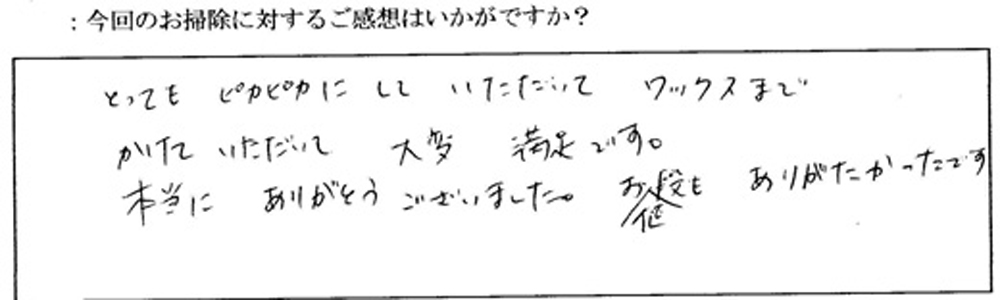 ：今回のお掃除に対するご感想はいかがですか？
とっても ピカピカに して いただいて ワックスまで
かけて いただいて 大変 満足です。
本当に ありがとう ございました。 お値段も ありがたかったです